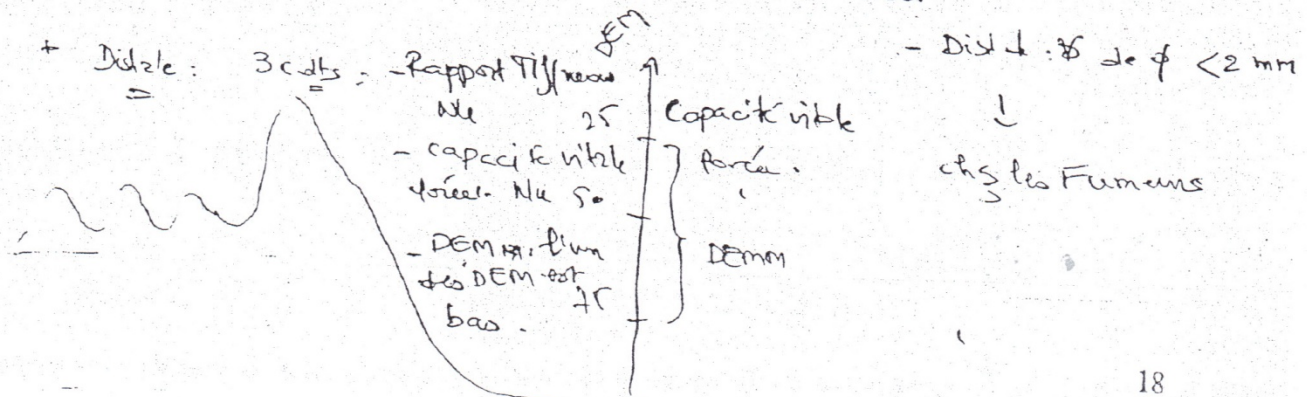 DEM
+ Distale : 3 cdts : - Rapport Tiffneau
Nle
25
- capacité vitale
forcée. Nle
50
- DEMM. l'un
des DEM est
bas.
75
Capacité vitale
forcée.
DEMM
- Distale : de φ < 2 mm
↓
chz les Fumeurs
18